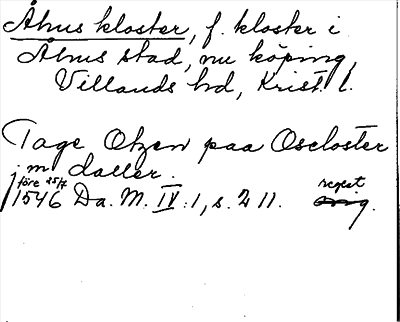 Åhus kloster, f. kloster i
Åhus stad, nu köping,
Villands hd, Krist. l.
Tage Otzen paa Oscloster
j m daller.
före 25/7
1546 Da. M. IV:1, s. 211. regest
orig.